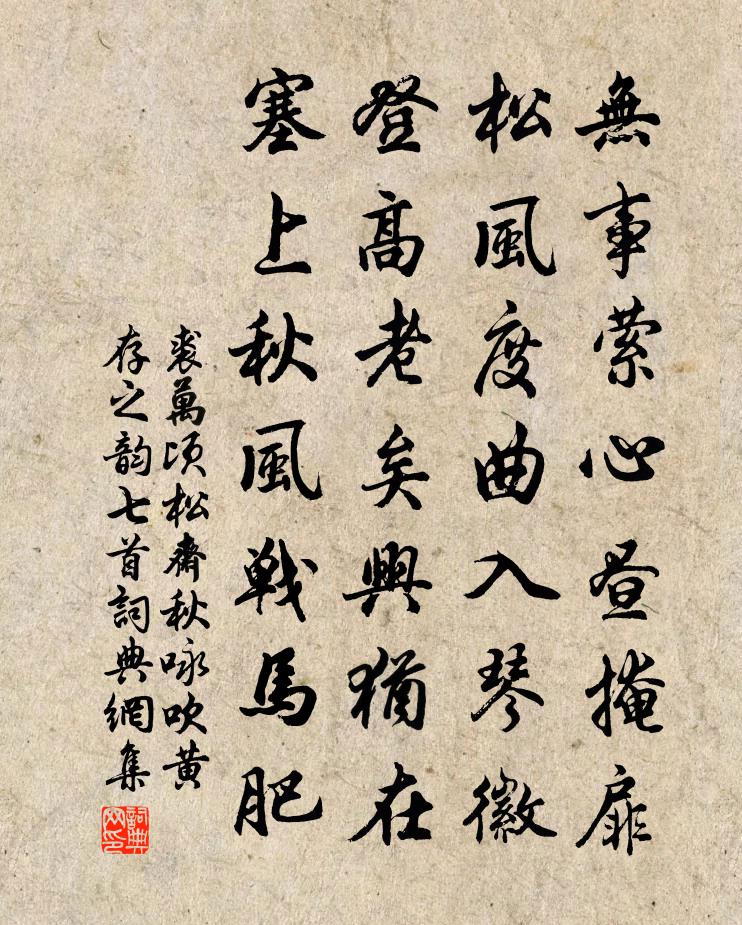 無事萦心昼掩扉
松風度曲入琴徽
登高老矣興猶在
塞上秋風戦馬肥
裘萬頃松齋秋咏吹黄
存之韵七首詞典網集
詞典网印